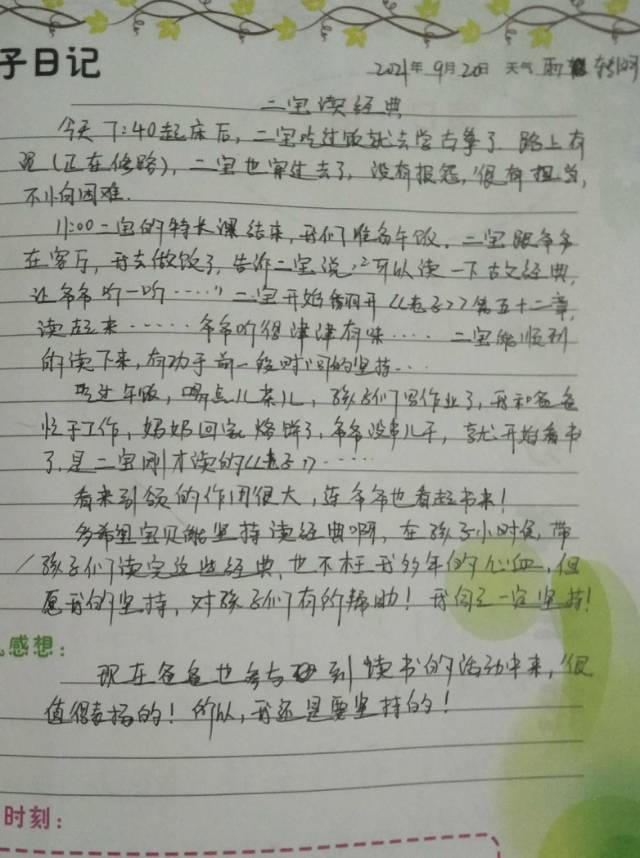 子日记
2021年9月20日 天气 雨转阴
二宝读经典
今天7:40起床后，二宝吃过饭就去学古筝了 路上有
泥(正在修路)，二宝也穿过去了，没有报怨，很有担当，
不怕困难.
11:00二宝的特长课结束，我们准备午饭.二宝跟爷爷
在客厅，我去做饭了，告诉二宝说："可以读一下古文经典，
让爷爷听一听……"二宝开始翻开《老子》第五十二章，
读起来……爷爷听得津津有味……二宝能顺利
的读下来，有功于前一段时间的坚持…
吃过午饭，喝点儿茶儿，孩子们写作业了，我和爸爸
忙于工作，奶奶回家烙饼了，爷爷没事儿干，就开始看书
了.是二宝刚才读的《老子》……
看来引领的作用很大，连爷爷也看起书来！
多希望宝贝能坚持读经典啊，在孩子小时候，带
孩子们读完这些经典，也不枉我多年的心血，但
愿我的坚持，对孩子们有所帮助！我们也一定坚持！
感想：
现在爸爸也参与到读书的活动中来，很
值得表扬的！所以，我还是要坚持的！
时刻：